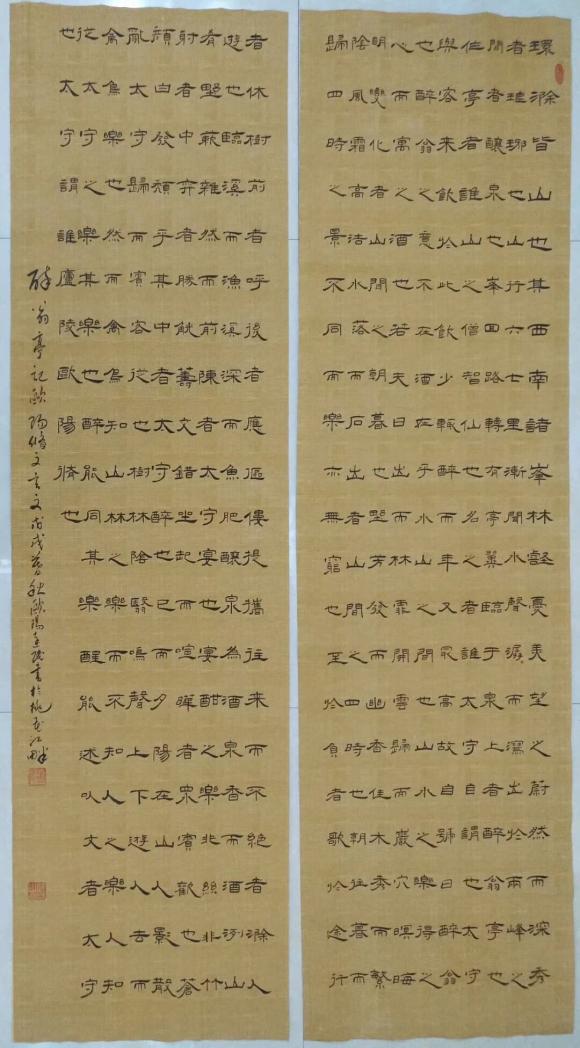 環滁皆山也其西南諸峯林壑憂美望之蔚然而深秀
者琅琊也山行六七里漸聞水聲潺而瀉出於兩峰之
間者釀泉也峯回路轉有亭翼臨于泉上者醉翁亭也
作亭者誰山之僧智仙也名之者誰太守自謂也太守
與容來飲於此飲少輒醉而年又最高故自號曰醉翁
也醉翁之意不在酒在乎水山之間也山水之樂得之
心而寓之酒也若夫日出而林霏開雲歸而巖穴暝晦
明變化者山間之朝暮也野芳發而幽香佳木秀而繁
陰風霜高洁水落而石出者山間之四時也朝往暮而
歸四時之景不同而樂亦無窮也至於負者歌於途行
者休樹前者呼後者應傴僂提攜往來而不絕者滁人
遊也臨溪而漁溪深而魚肥釀泉為酒泉香而酒洌山
有野蔌雜然而前陳者太守宴也宴酣之樂非絲非竹
射者中弈者勝觥籌交錯坐起而喧嘩者眾賓歡也蒼
顏白發頹乎其中者太守醉也已而夕陽在山人影散
亂太守歸而賓容從也樹林陰翳鳴聲上下遊人去而
禽鳥樂也然而禽鳥知山林之樂而不知人之樂人知
從太守之樂其樂也醉能同其樂醒能述以文者太守
也太守謂誰廬陵歐陽脩也
醉翁亭記歐陽修文言文丙戌暮秋歐陽書於桃花江畔